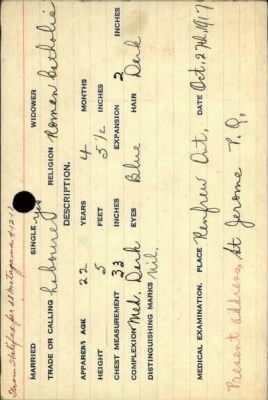 From Halifax per ss Metagama 4121
MARRIED SINGLE yes WIDOWER
TRADE OR CALLING Labourer RELIGION Roman Catholic
DESCRIPTION.
APPARENT AGE 22 YEARS 4 MONTHS
HEIGHT 5 FEET 5½ INCHES
CHEST MEASUREMENT 33 INCHES EXPANSION 2 INCHES
COMPLEXION Med. Dark EYES Blue HAIR Dark
DISTINGUISHING MARKS Nil.
MEDICAL EXAMINATION. PLACE Renfrew Ont. DATE Oct, 27th, 1917
Present address, St Jerome P.Q.